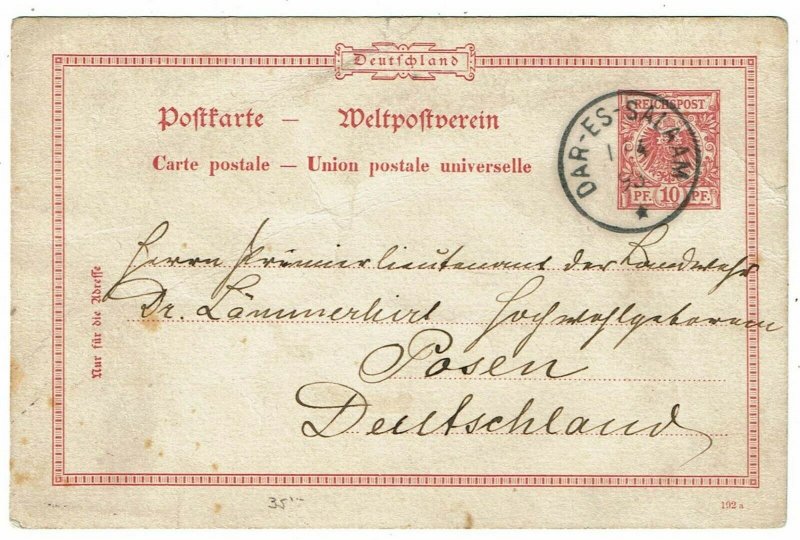 Deutschland
Postkarte — Weltpostverein
Carte postale — Union postale universelle
REICHSPOST
PF. 10 PF.
DAR-ES-SALAAM
Nur für die Adresse
Herrn Premierlieutenant der Landwehr
Dr. Lämmerhirt Hochwohlgeboren
Posen
Deutschland
35
192 a